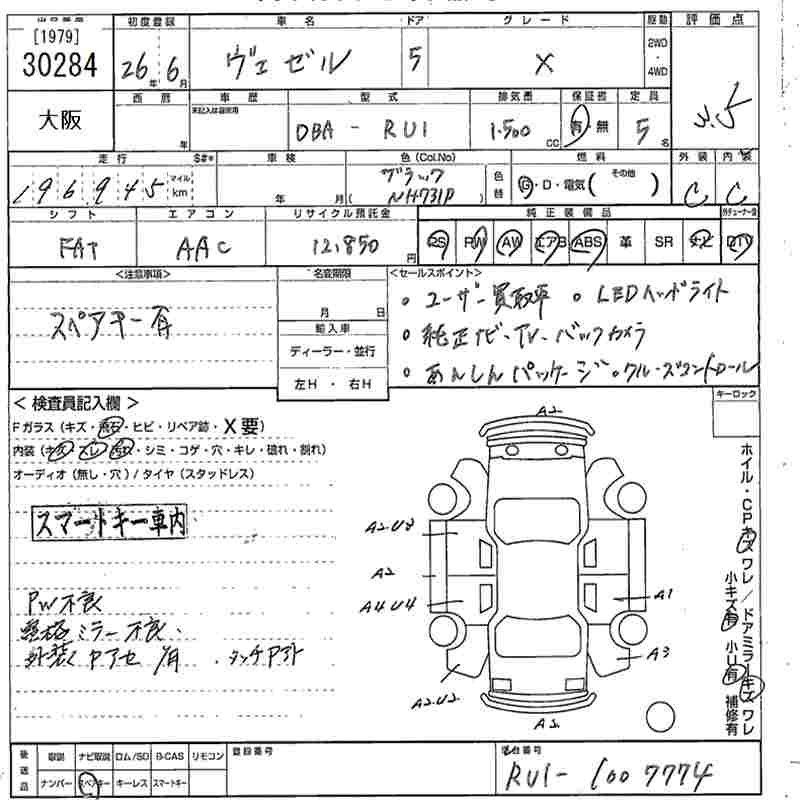 [1979]
30284
大阪
初度登録
26年 6月
車名
ヴェゼル
ドア
5
グレード
X
駆動
2WD
・
4WD
評価点
3.5
西暦
年
車歴
未記入は自家用
型式
DBA - RU1
排気量
1.500 CC
保証書
有・無
定員
5名
走行 S#*
196945 マイル km
車検
年 月
色 (Col.No)
ブラック
( NH731P )
色替
燃料
G・D・電気 ( その他 )
外装
C
内装
C
シフト
FAT
エアコン
AAC
リサイクル預託金
12,850円
純正装備品
PS PW AW エアB ABS 革 SR ナビ DTV
<注意事項>
スペアキー有
名変期限
月 日
輸入車
ディーラー・並行
左H ・ 右H
<セールスポイント>
○ ユーザー買取車 ○ LEDヘッドライト
○ 純正ナビ・TV・バックカメラ
○ あんしんパッケージ・クルーズコントロール
キーロック
< 検査員記入欄 >
Fガラス (キズ・飛石・ヒビ・リペア跡・X要)
内装 (キズ・スレ・汚れ・シミ・コゲ・穴・キレ・破れ・割れ)
オーディオ (無し・穴) / タイヤ (スタッドレス)
スマートキー車内
PW不良
ミラー不良、
外装 ヤケ 有 . タッチアト
A2
A2.U3
A2
A4 U4
A2.U2
A1
A3
A2
ホイル・CPキズ ワレ / ドアミラーキズ ワレ
小キズ有 小U有 補修有
後送品
取説 ナビ取説 ロム/SD B-CAS リモコン
ナンバー スペアキー キーレス スマートキー
登録番号
車台番号
RU1- 1007774